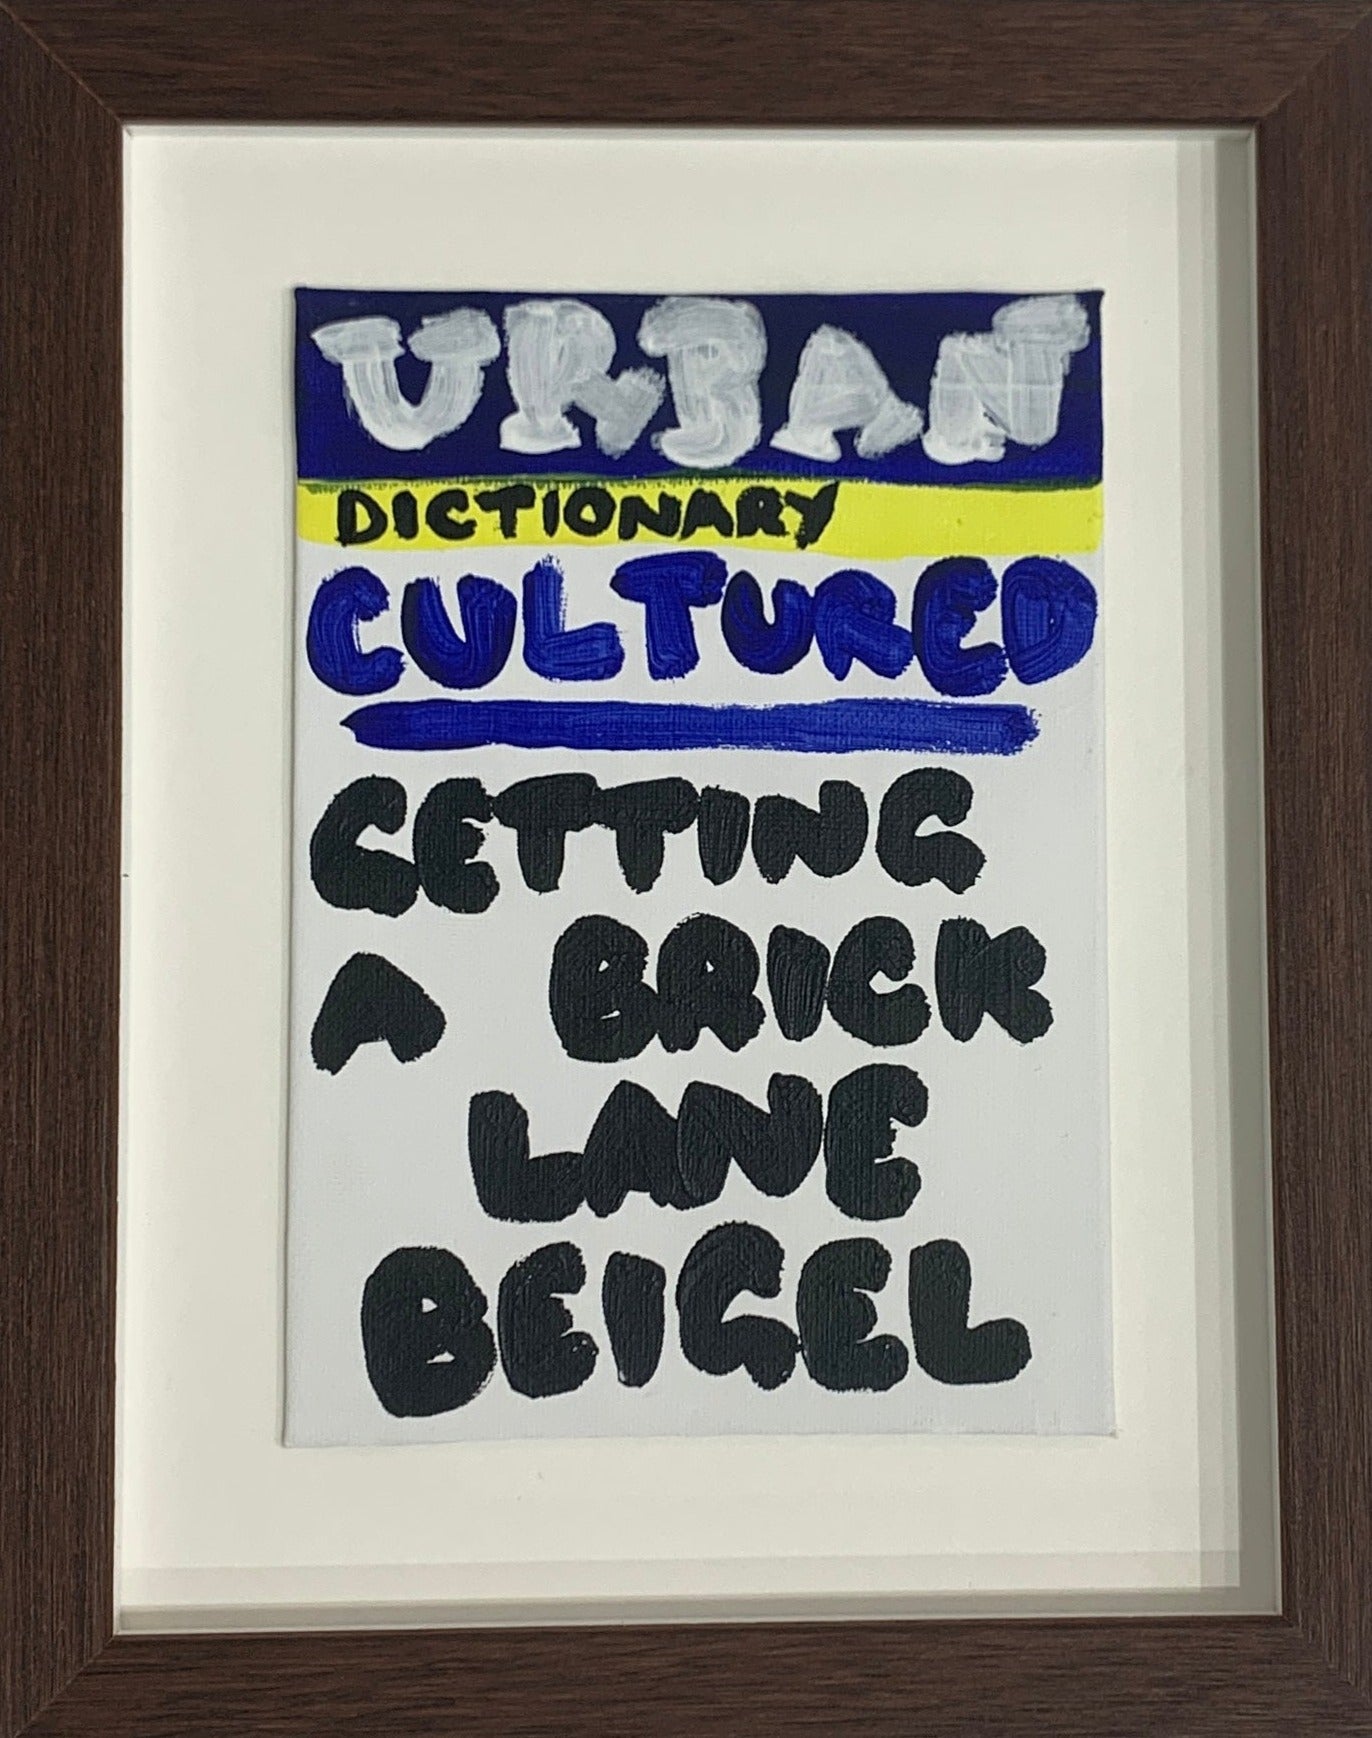 URBAN
DICTIONARY
CULTURED
GETTING
A BRICK
LANE
BEIGEL